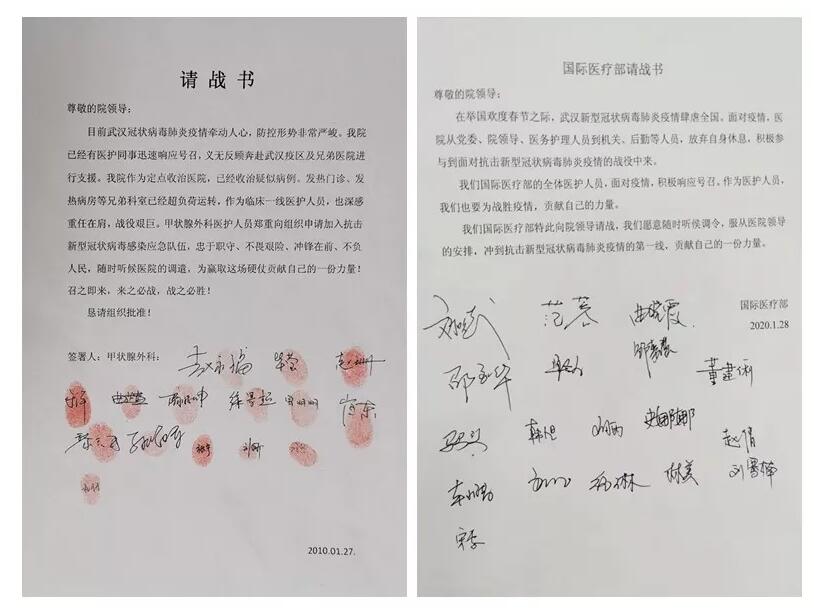 请战书
尊敬的院领导：
目前武汉冠状病毒肺炎疫情牵动人心，防控形势非常严峻。我院
已经有医护同事迅速响应号召，义无反顾奔赴武汉疫区及兄弟医院
进行支援。我院作为定点收治医院，已经收治疑似病例。发热门诊、发
热病房等兄弟科室已经超负荷运转，作为临床一线医护人员，也深感
重任在肩，战役艰巨。甲状腺外科医护人员郑重向组织申请加入抗击
新型冠状病毒感染应急队伍，忠于职守、不畏艰险、冲锋在前、不负
人民，随时听候医院的调遣，为赢取这场硬仗贡献自己的一份力量！
召之即来，来之必战，战之必胜！
恳请组织批准！
签署人：甲状腺外科：
2010.01.27.
国际医疗部请战书
尊敬的院领导：
在举国欢度春节之际，武汉新型冠状病毒肺炎疫情肆虐全国。面对疫情，医
院从党委、院领导、医务护理人员到机关、后勤等人员，放弃自身休息，积极参
与到面对抗击新型冠状病毒肺炎疫情的战役中来。
我们国际医疗部的全体医护人员，面对疫情，积极响应号召。作为医护人员，
我们也要为战胜疫情，贡献自己的力量。
我们国际医疗部特此向院领导请战，我们愿意随时听候调令，服从医院领导
的安排，冲到抗击新型冠状病毒肺炎疫情的第一线，贡献自己的一份力量。
国际医疗部
2020.1.28
范蓉
邵玉华
董建俐
韩旭
史娜娜
赵倩